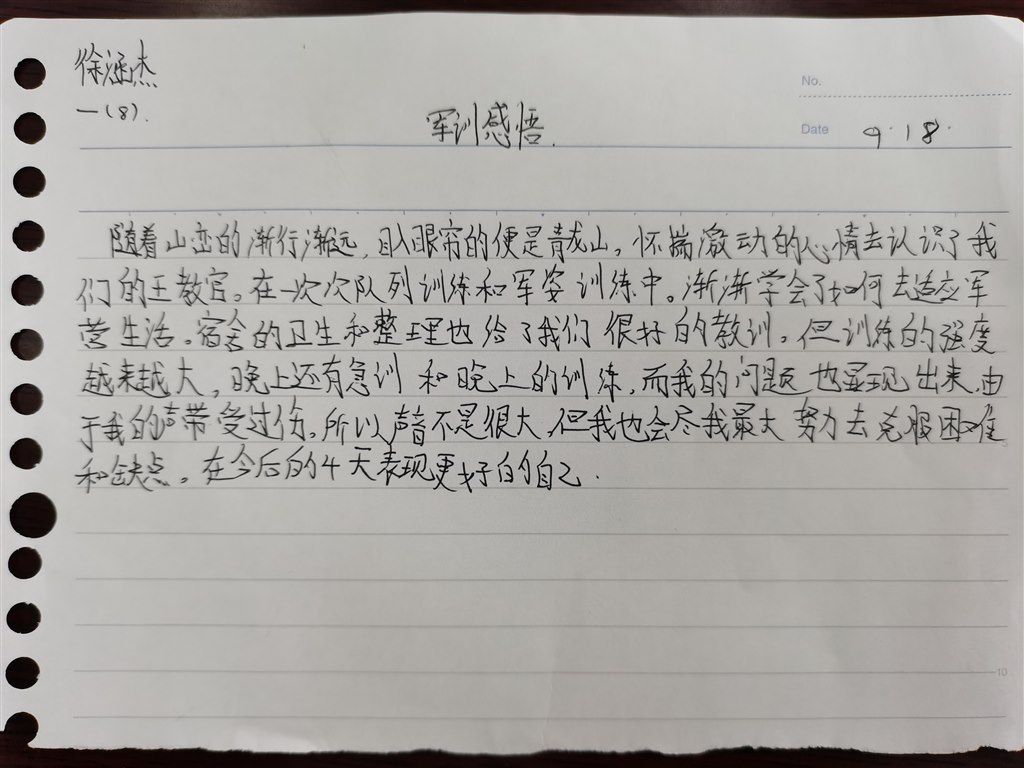 徐涵杰
No.
一(8).
军训感悟.
Date 9.18.
随着山峦的渐行渐远,映入眼帘的便是青龙山。怀揣激动的心情去认识了我
们的王教官。在一次次队列训练和军姿训练中。渐渐学会了如何去适应军
营生活。宿舍的卫生和整理也给了我们很好的教训。但训练的强度
越来越大,晚上还有急训和晚上的训练,而我的问题也显现出来,由
于我的声带受过伤,所以声音不是很大,但我也会尽我最大努力去克服困难
和缺点。在今后的4天表现更好的自己.
10